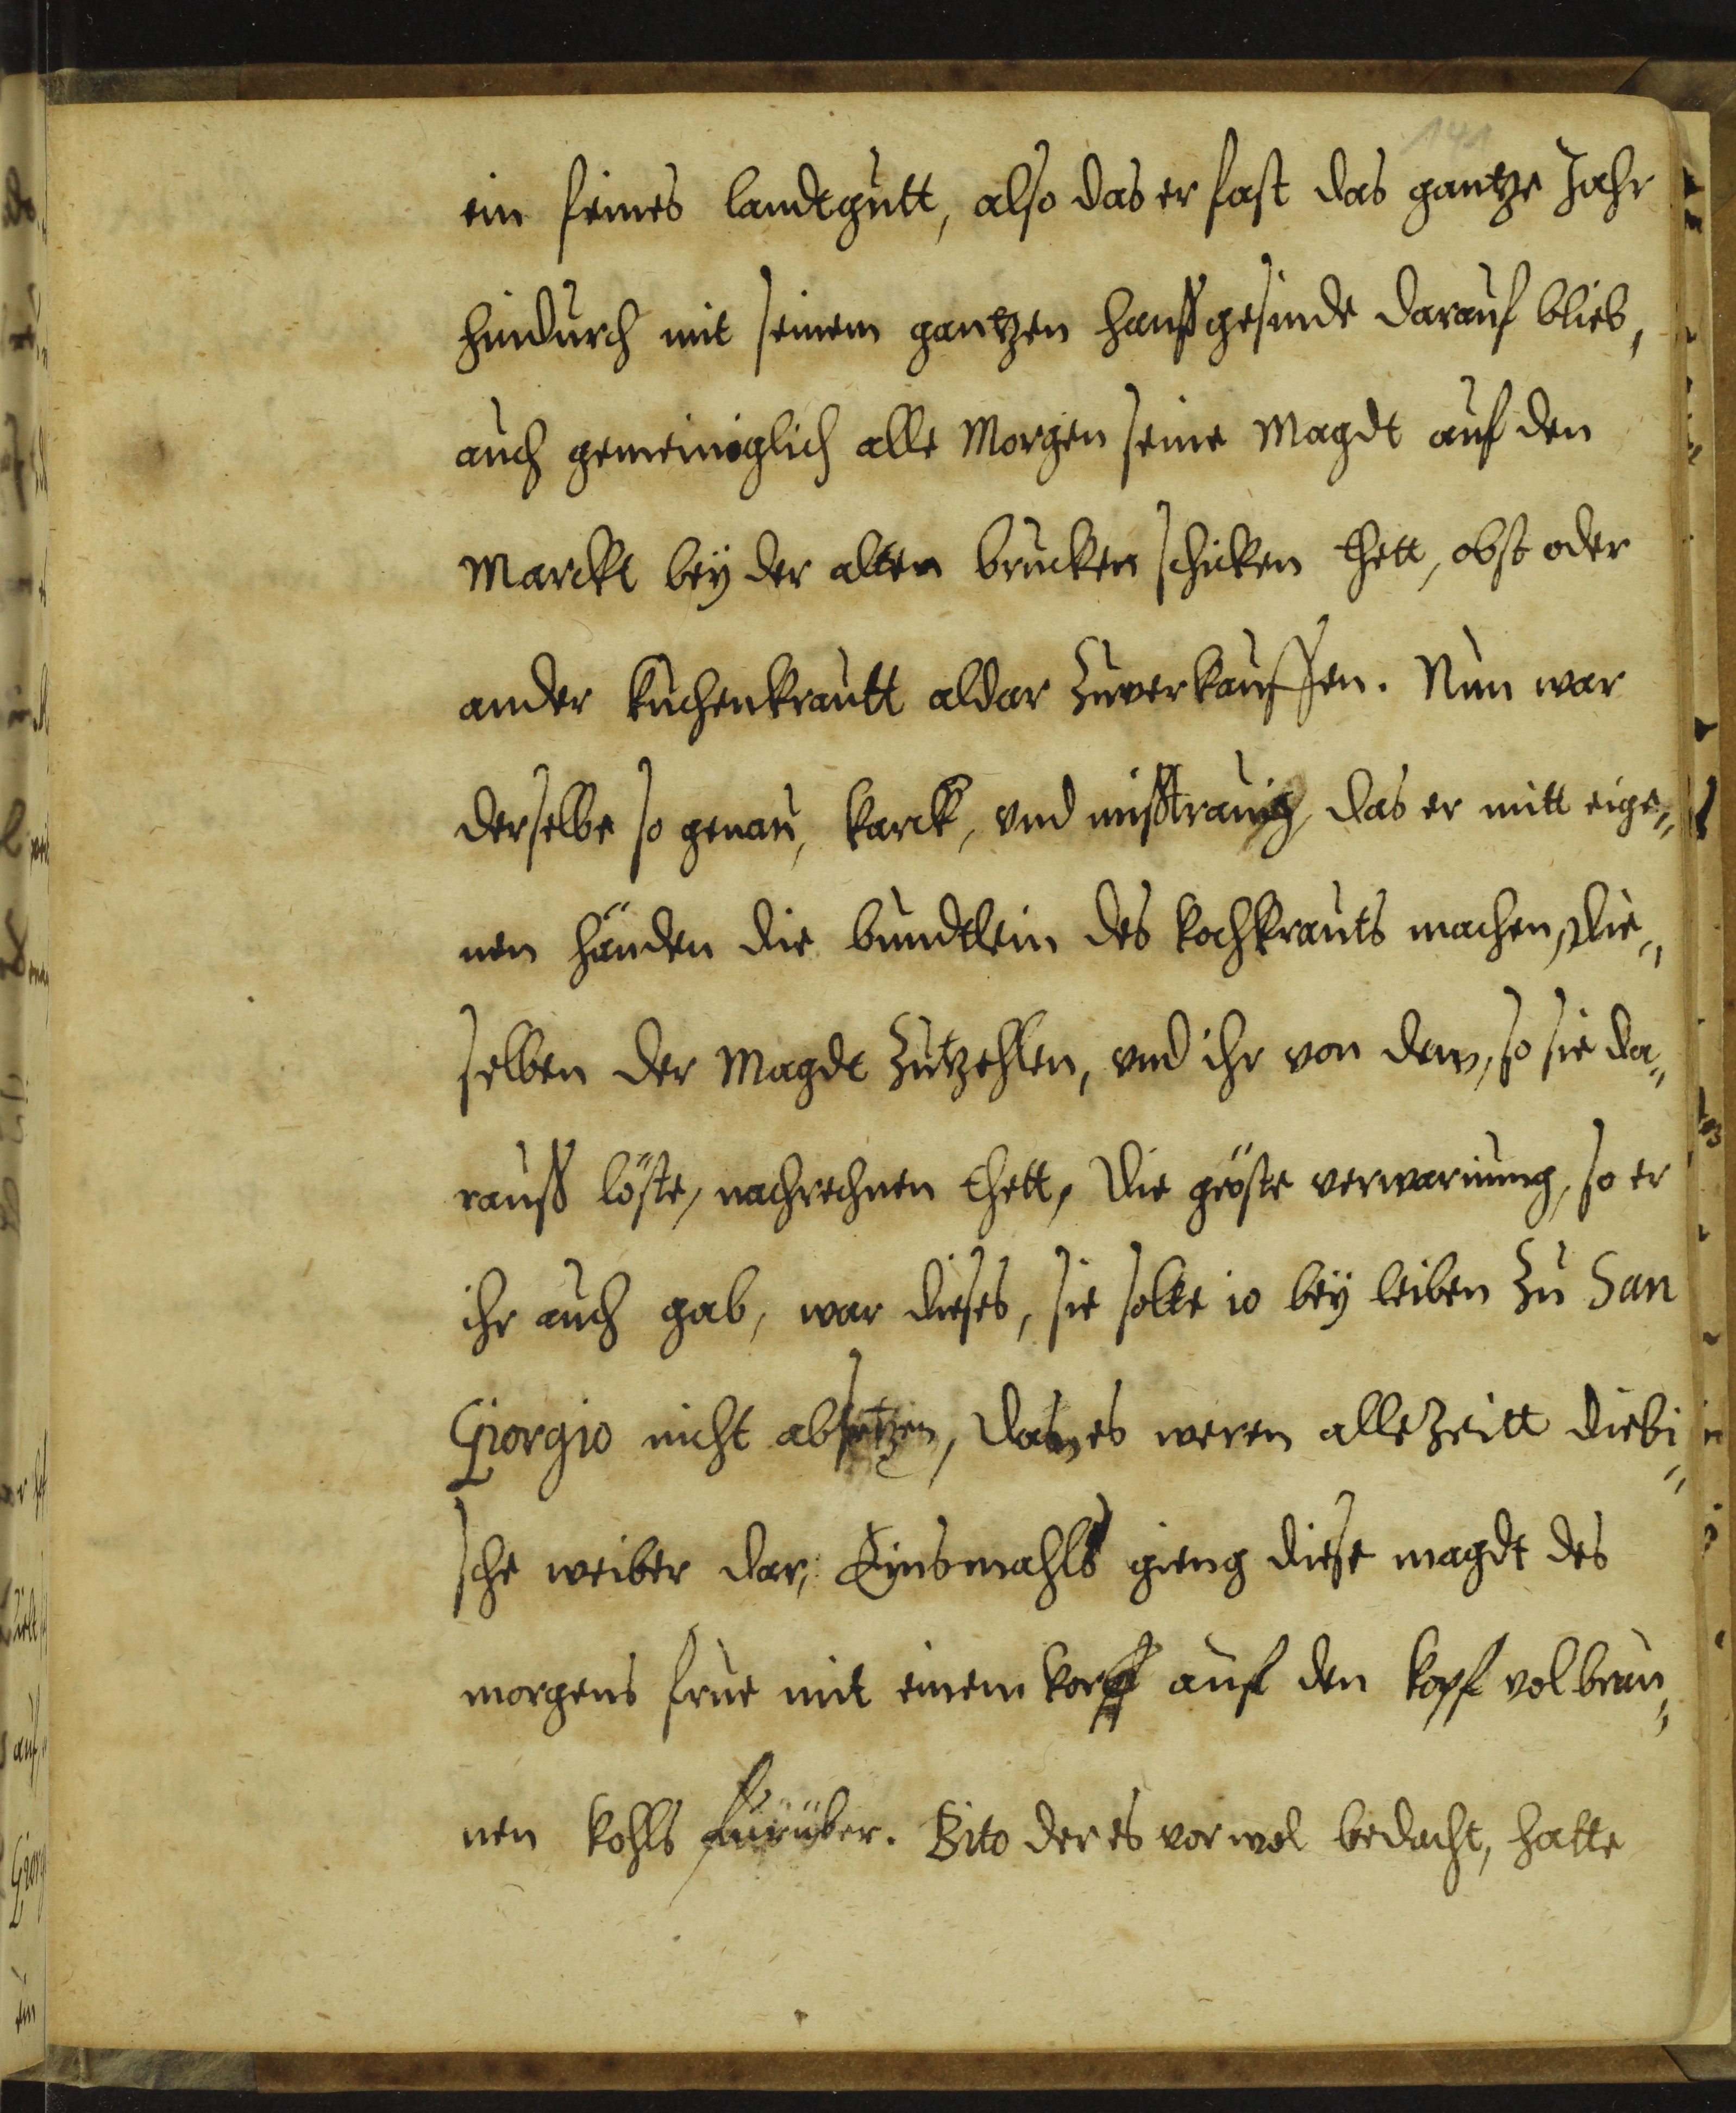 141
ein feines landtgutt, also das er fast das gantze Jahr
hindurch mit seinem gantzen haußgesinde darauf blieb,
auch gemeiniglich alle Morgen seine Magdt auf den
Marckt bey der alten brucken schicken thett, obst oder
ander kuchenkrautt aldar zuverkauffen. Nun war
derselbe so genau, karck, vnd mißtrauig, das er mitt eige„
nen händen die bundtlein des kochkrauts machen, die„
selben der Magdt zutzehlen, vnd ihr von dem, so sie da„
rauß löste, nachrechnen thett, Die gröste verwarnung, so er
ihr auch gab, war dieses, sie solte io bey leiben zu San
Giorgio nicht absetzen, dan es weren allezeitt diebi„
sche weiber dar, Einsmahls gieng diese magdt des
morgens frue mit einem korff auf den kopf vol brau„
nen kohls furüber. Bito der es vor wol bedacht, hatte